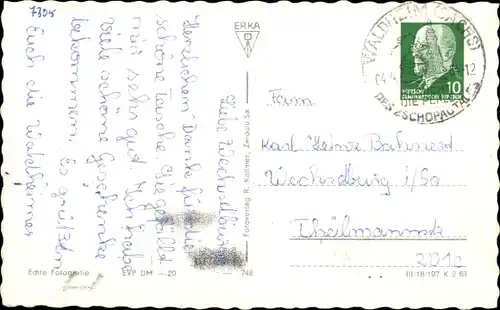 7305
Liebe Wechselburger
Herzlichen Dank für die
schöne Tasche Sie gefällt
mir sehr gut. Ich habe
viele schöne Geschenke
bekommen. Es grüßen
Euch die Waldheimer
Echte Fotografie EVP DM -.20 748
ERKA
Fotoverlag R. Kallmer, Zwickau Sa.
WALDHEIM (SACHS)
DIE PERLE
DES ZSCHOPAUTALES
10
DEUTSCHE
DEMOKRATISCHE REPUBLIK
Fam.
Karl Heinz
Wechselburg i/Sa
III-18-197 K 2 63